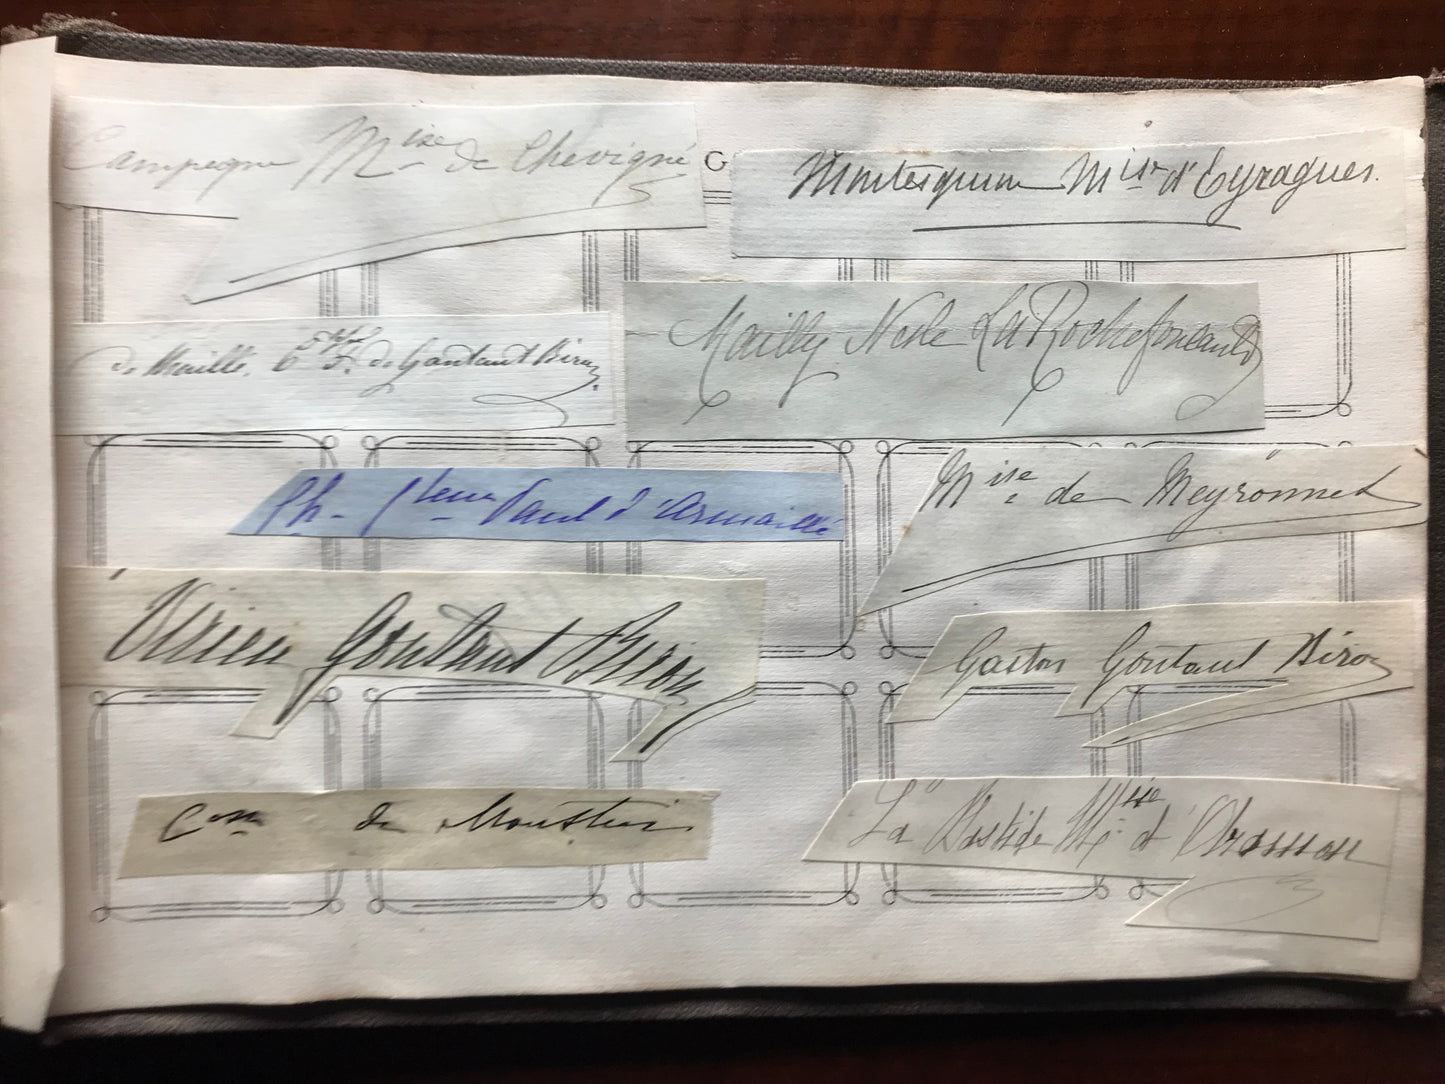 Campagne Mise de Chevigné
G
Montesquiou Mise d'Eyragues.
de Maillé, Ctesse F. de Gontaut Biron
Mailly Nesle La Rochefoucauld
Ph. Paul d'Armaillé
Mise de Meyronnet
Gontaut Biron
Gaston Gontaut Biron
de Moustier
La Bastide Mise d'